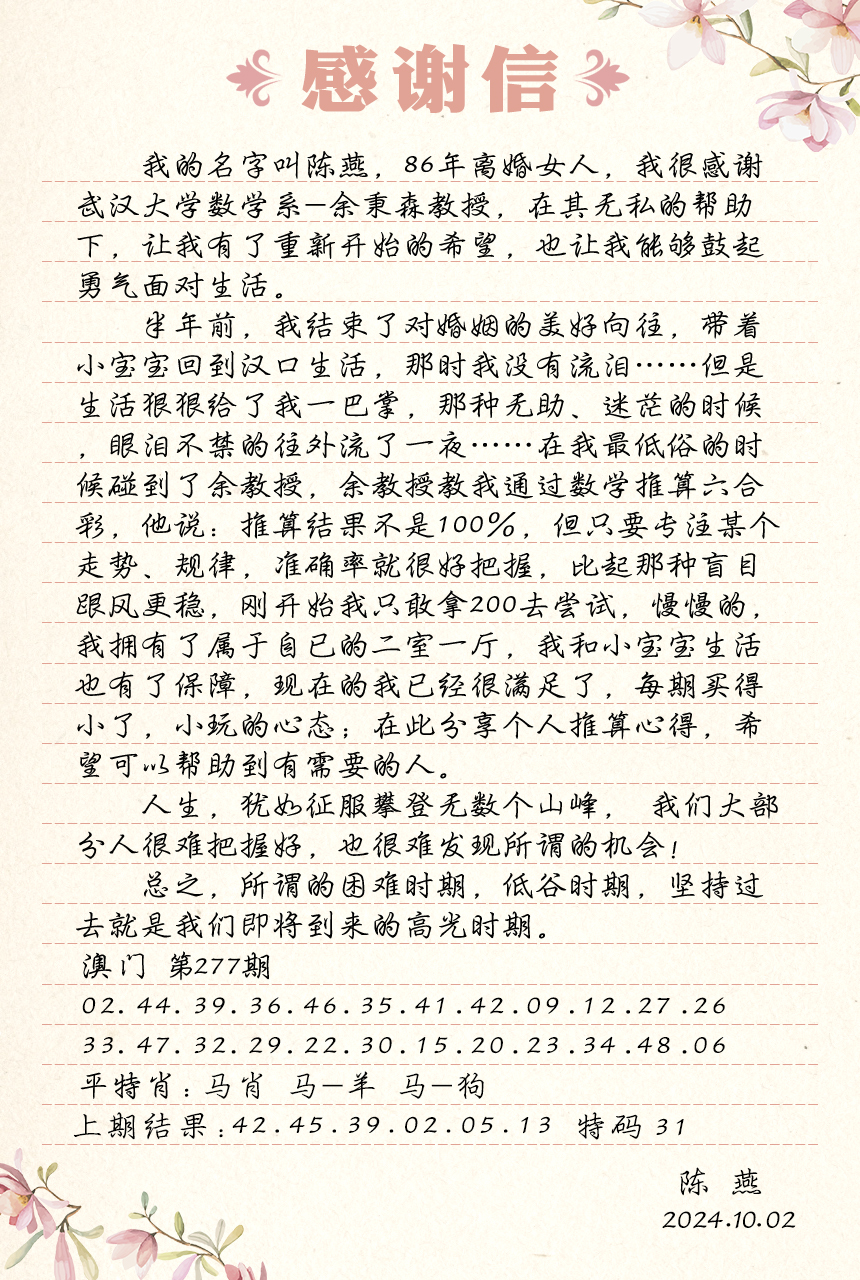 感谢信
我的名字叫陈燕，86年离婚女人，我很感谢
武汉大学数学系—余秉森教授，在其无私的帮助
下，让我有了重新开始的希望，也让我能够鼓起
勇气面对生活。
半年前，我结束了对婚姻的美好向往，带着
小宝宝回到汉口生活，那时我没有流泪……但是
生活狠狠给了我一巴掌，那种无助、迷茫的时候
，眼泪不禁的往外流了一夜……在我最低俗的时
候碰到了余教授，余教授教我通过数学推算六合
彩，他说：推算结果不是100%，但只要专注某个
走势、规律，准确率就很好把握，比起那种盲目
跟风更稳，刚开始我只敢拿200去尝试，慢慢的，
我拥有了属于自已的二室一厅，我和小宝宝生活
也有了保障，现在的我已经很满足了，每期买得
小了，小玩的心态；在此分享个人推算心得，希
望可以帮助到有需要的人。
人生，犹如征服攀登无数个山峰， 我们大部
分人很难把握好，也很难发现所谓的机会！
总之，所谓的困难时期，低谷时期，坚持过
去就是我们即将到来的高光时期。
澳门 第277期
02.44.39.36.46.35.41.42.09.12.27.26
33.47.32.29.22.30.15.20.23.34.48.06
平特肖：马肖 马—羊 马—狗
上期结果：42.45.39.02.05.13 特码 31
陈 燕
2024.10.02